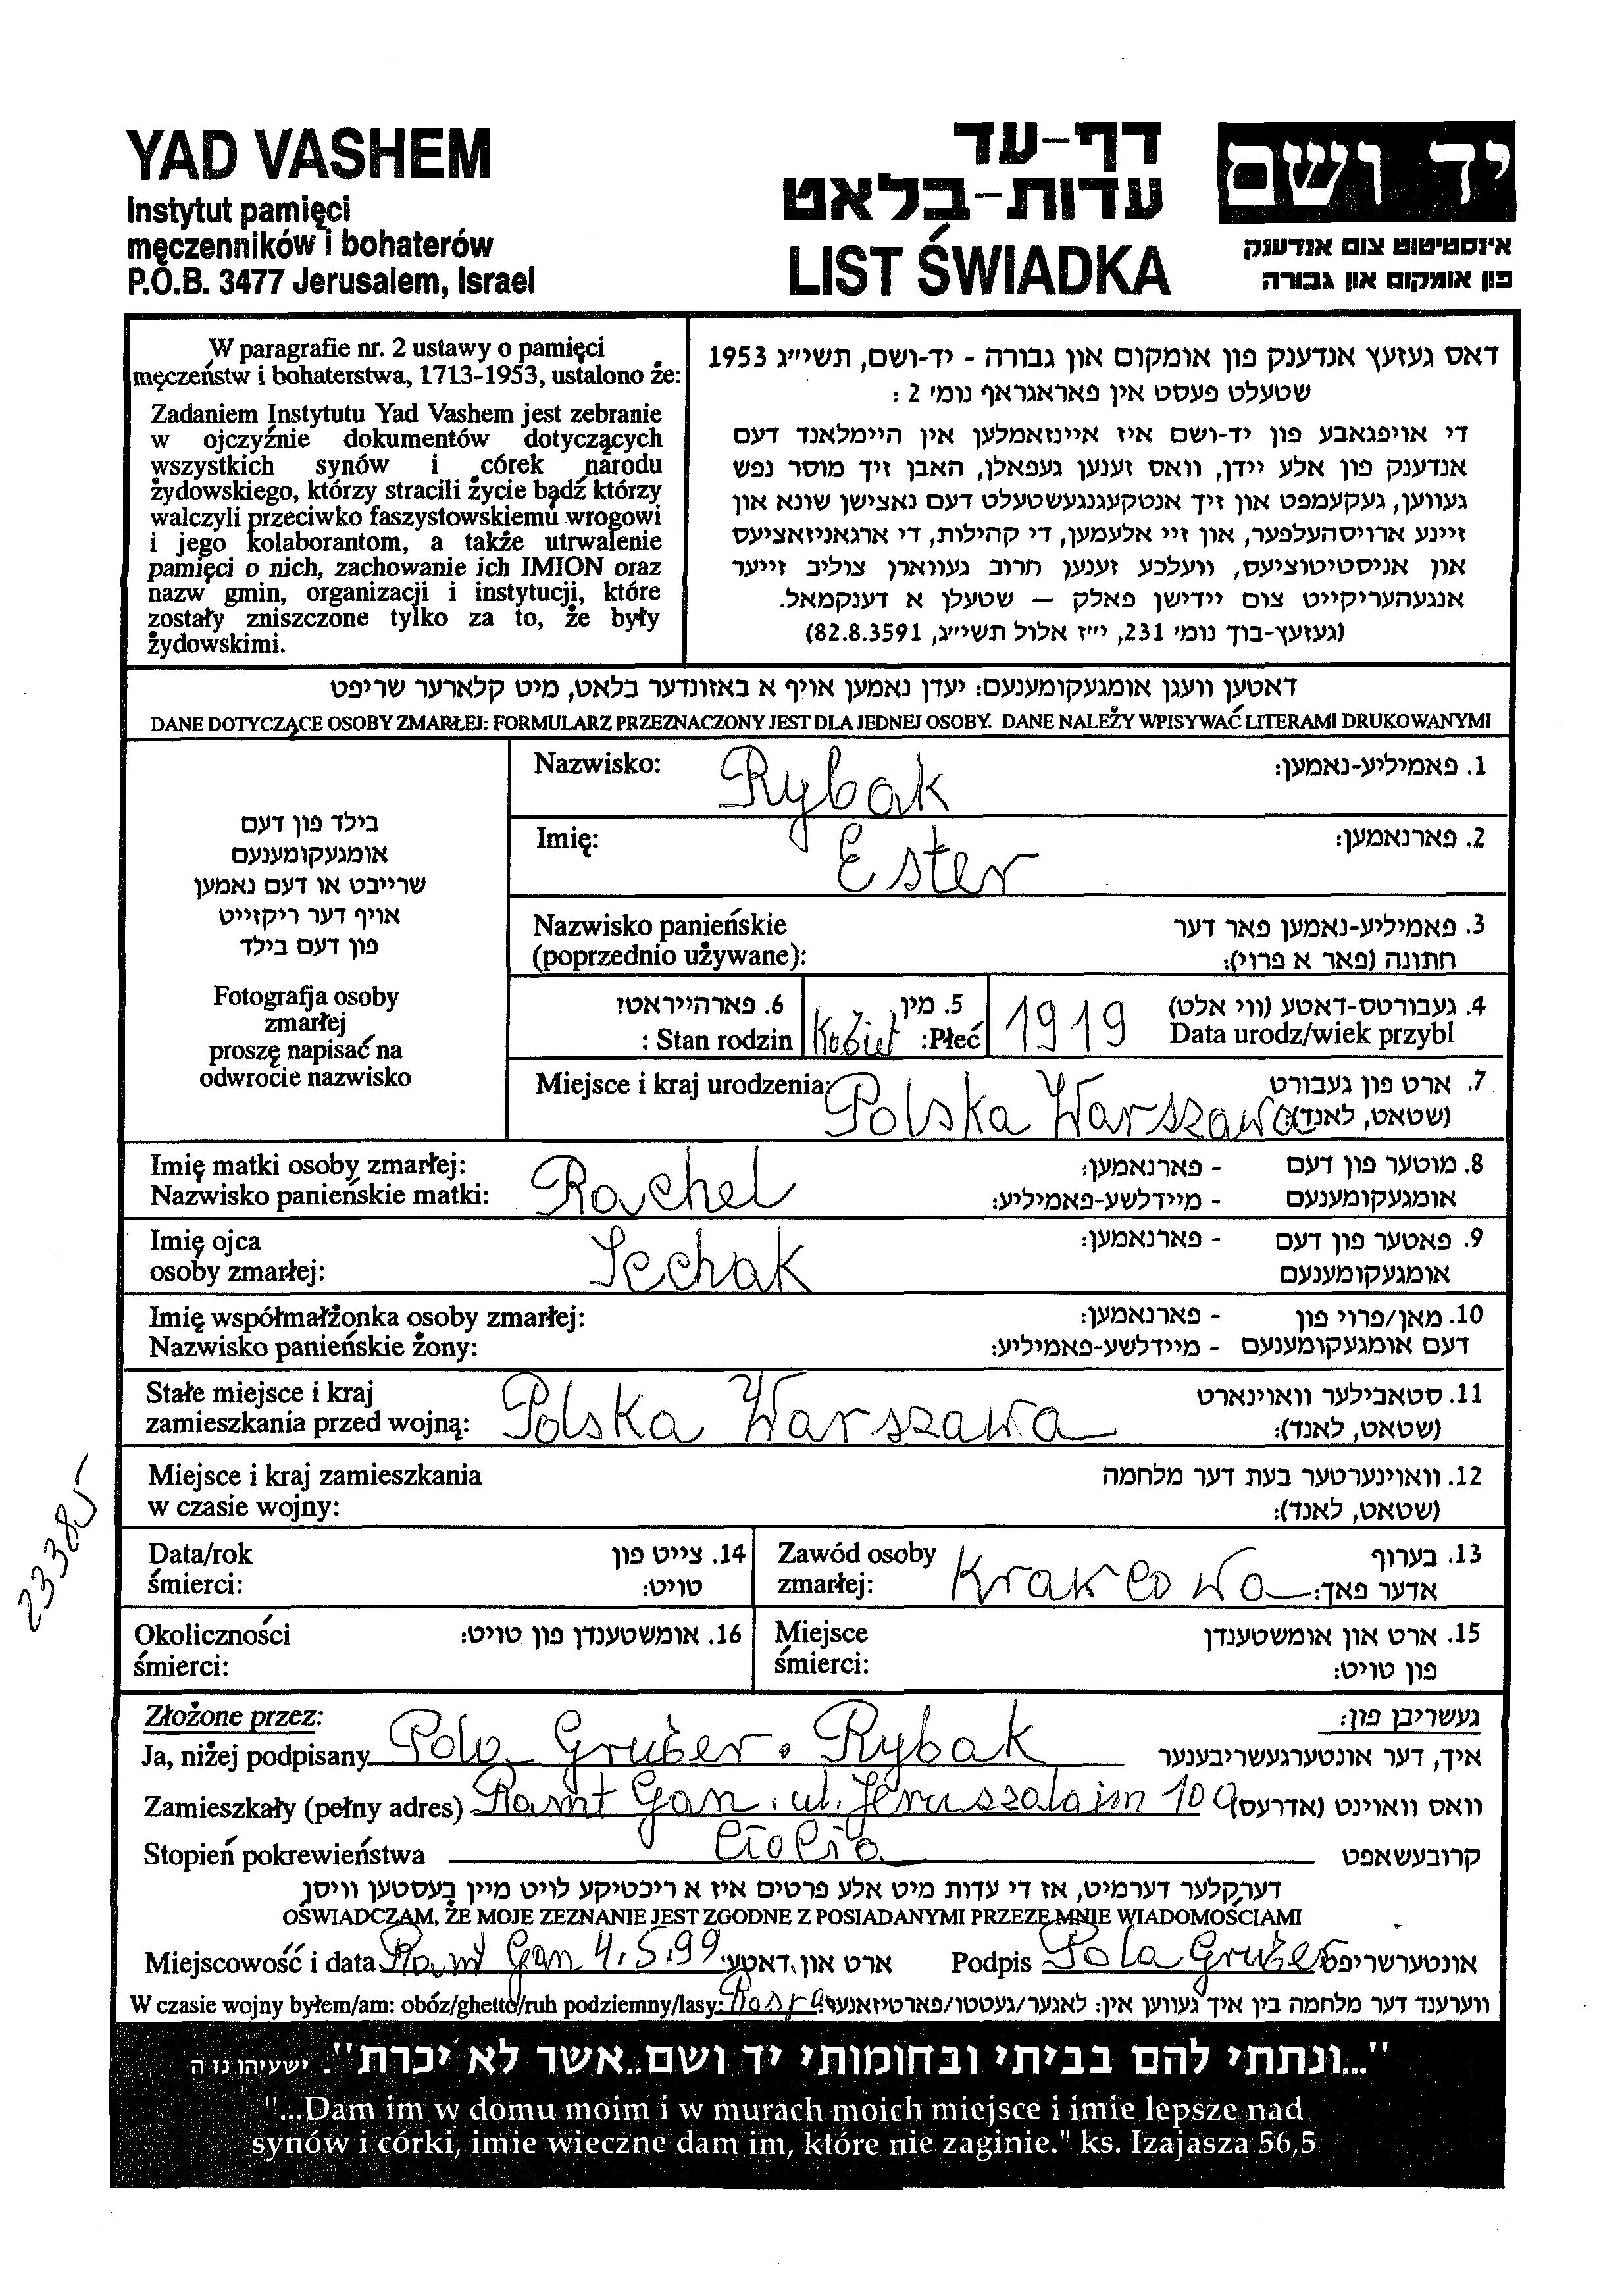 YAD VASHEM
Instytut pamięci
męczenników i bohaterów
P.O.B. 3477 Jerusalem, Israel
דף-עד
עדות-בלאט
LIST ŚWIADKA
יד ושם
אינסטיטוט צום אנדענק
פון אומקום און גבורה
W paragrafie nr. 2 ustawy o pamięci
męczeństw i bohaterstwa, 1713-1953, ustalono że:
Zadaniem Instytutu Yad Vashem jest zebranie
w ojczyźnie dokumentów dotyczących
wszystkich synów i córek narodu
żydowskiego, którzy stracili życie bądź którzy
walczyli przeciwko faszystowskiemu wrogowi
i jego kolaborantom, a także utrwalenie
pamięci o nich, zachowanie ich IMION oraz
nazw gmin, organizacji i instytucji, które
zostały zniszczone tylko za to, że były
żydowskimi.
דאס געזעץ אנדענק פון אומקום און גבורה - יד-ושם, תשי״ג 1953
שטעלט פעסט אין פאראגראף נומ׳ 2 :
די אויפגאבע פון יד-ושם איז איינזאמלען אין היימלאנד דעם
אנדענק פון אלע יידן, וואס זענען געפאלן, האבן זיך מוסר נפש
געווען, געקעמפט און זיך אנטקעגנגעשטעלט דעם נאצישן שונא און
זיינע ארויסהעלפער, און זיי אלעמען, די קהילות, די ארגאניזאציעס
און אניסטיטוציעס, וועלכע זענען חרוב געווארן צוליב זייער
אנגעהעריקייט צום יידישן פאלק – שטעלן א דענקמאל.
(געזעץ-בוך נומ׳ 231, י״ז אלול תשי״ג, 82.8.3591)
דאטען וועגן אומגעקומענעם: יעדן נאמען אויף א באזונדער בלאט, מיט קלארער שריפט
DANE DOTYCZĄCE OSOBY ZMARŁEJ: FORMULARZ PRZEZNACZONY JEST DLA JEDNEJ OSOBY. DANE NALEŻY WPISYWAĆ LITERAMI DRUKOWANYMI
בילד פון דעם
אומגעקומענעם
שרייבט או דעם נאמען
אויף דער ריקזייט
פון דעם בילד
Fotografja osoby
zmarłej
proszę napisać na
odwrocie nazwisko
Nazwisko: Rybak 1. פאמיליע-נאמען:
Imię: Ester 2. פארנאמען:
Nazwisko panieńskie 3. פאמיליע-נאמען פאר דער
(poprzednio używane): חתונה (פאר א פרוי):
6. פארהייראט? 5. מין 4. געבורטס-דאטע (ווי אלט)
: Stan rodzin Kobiet :Płeć 1919 Data urodz/wiek przybl
Miejsce i kraj urodzenia: Polska Warszawa 7. ארט פון געבורט
(שטאט, לאנד):
Imię matki osoby zmarłej: Rachel 8. מוטער פון דעם - פארנאמען:
Nazwisko panieńskie matki: אומגעקומענעם - מיידלשע-פאמיליע:
Imię ojca 9. פאטער פון דעם - פארנאמען:
osoby zmarłej: Icchak אומגעקומענעם
Imię współmałżonka osoby zmarłej: 10. מאן/פרוי פון - פארנאמען:
Nazwisko panieńskie żony: דעם אומגעקומענעם - מיידלשע-פאמיליע:
Stałe miejsce i kraj 11. סטאבילער וואוינארט
zamieszkania przed wojną: Polska Warszawa (שטאט, לאנד):
Miejsce i kraj zamieszkania 12. וואוינערטער בעת דער מלחמה
w czasie wojny: (שטאט, לאנד):
Data/rok 14. צייט פון Zawód osoby 13. בערוף
śmierci: טויט: zmarłej: Krawcowa אדער פאך:
Okoliczności 16. אומשטענדן פון טויט: Miejsce 15. ארט און אומשטענדן
śmierci: śmierci: פון טויט:
23385
Złożone przez: געשריבן פון:
Ja, niżej podpisany Pola Gruber. Rybak איך, דער אונטערגעשריבענער
Zamieszkały (pełny adres) Ramt Gan. ul. Jeruszalaim 109 וואס וואוינט (אדרעס)
Stopień pokrewieństwa ciocia קרובעשאפט
דערקלער דערמיט, אז די עדות מיט אלע פרטים איז א ריכטיקע לויט מיין בעסטען וויסן
OŚWIADCZAM, ŻE MOJE ZEZNANIE JEST ZGODNE Z POSIADANYMI PRZEZE MNIE WIADOMOŚCIAMI
Miejscowość i data Ramt Gan 4.5.99 ארט און דאטע: Podpis Pola Gruber אונטערשריפט
W czasie wojny byłem/am: obóz/ghetto/ruh podziemny/lasy: ווערענד דער מלחמה בין איך געווען אין: לאגער/געטטו/פארטיזאנער
"...ונתתי להם בביתי ובחומותי יד ושם..אשר לא יכרת". ישעיהו נז ה
"....Dam im w domu moim i w murach moich miejsce i imie lepsze nad
synów i córki, imie wieczne dam im, które nie zaginie." ks. Izajasza 56,5